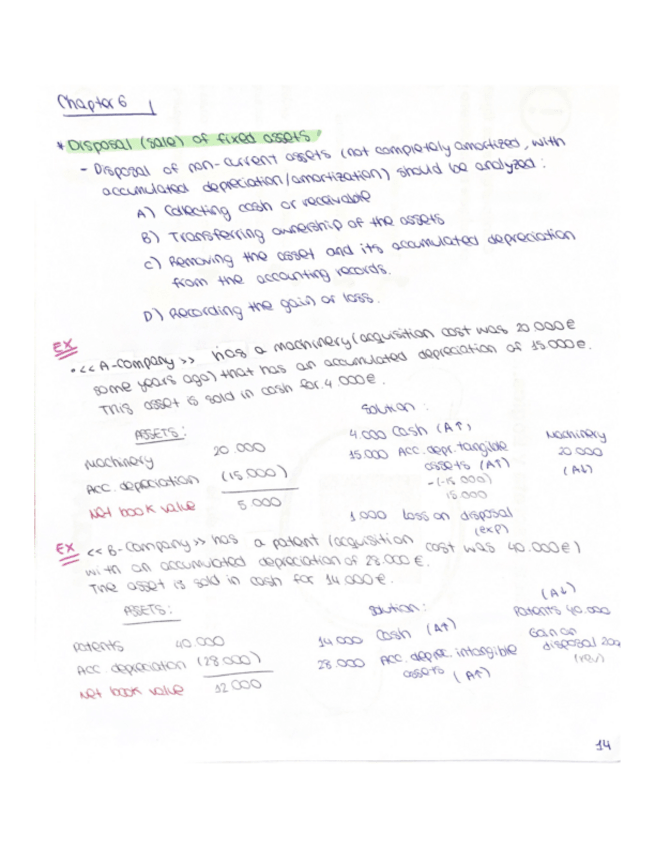 Chapter 6
* Disposal (sale) of fixed assets
- Disposal of non-current assets (not completely amortized, with
accumulated depreciation/amortization) should be analyzed:
A) Collecting cash or receivable
B) Transferring ownership of the assets
C) Removing the asset and its accumulated depreciation
from the accounting records.
D) Recording the gain or loss.
EX
• << A-Company >> has a machinery (acquisition cost was 20.000€
some years ago) that has an accumulated depreciation of 15000€.
This asset is sold in cash for 4.000€.
ASSETS:
Machinery 20.000
Acc. depreciation (15.000)
Net book value 5.000
Solution:
4.000 Cash (A↑)
15.000 Acc. depr. tangible
assets (A↑)
-(-15 000)
15.000
1.000 Loss on disposal
(exp)
Machinery
20.000
(A↓)
EX << B-Company >> has a patent (acquisition cost was 40.000€)
with an accumulated depreciation of 28.000€.
The asset is sold in cash for 14.000€.
ASSETS:
Patents 40.000
Acc. depreciation (28000)
Net book value 12000
Solution:
14 000 Cash (A↑)
28.000 Acc. deprec. intangible
assets (A↑)
(A↓)
Patents 40.000
Gain on
disposal 200
(rev)
14